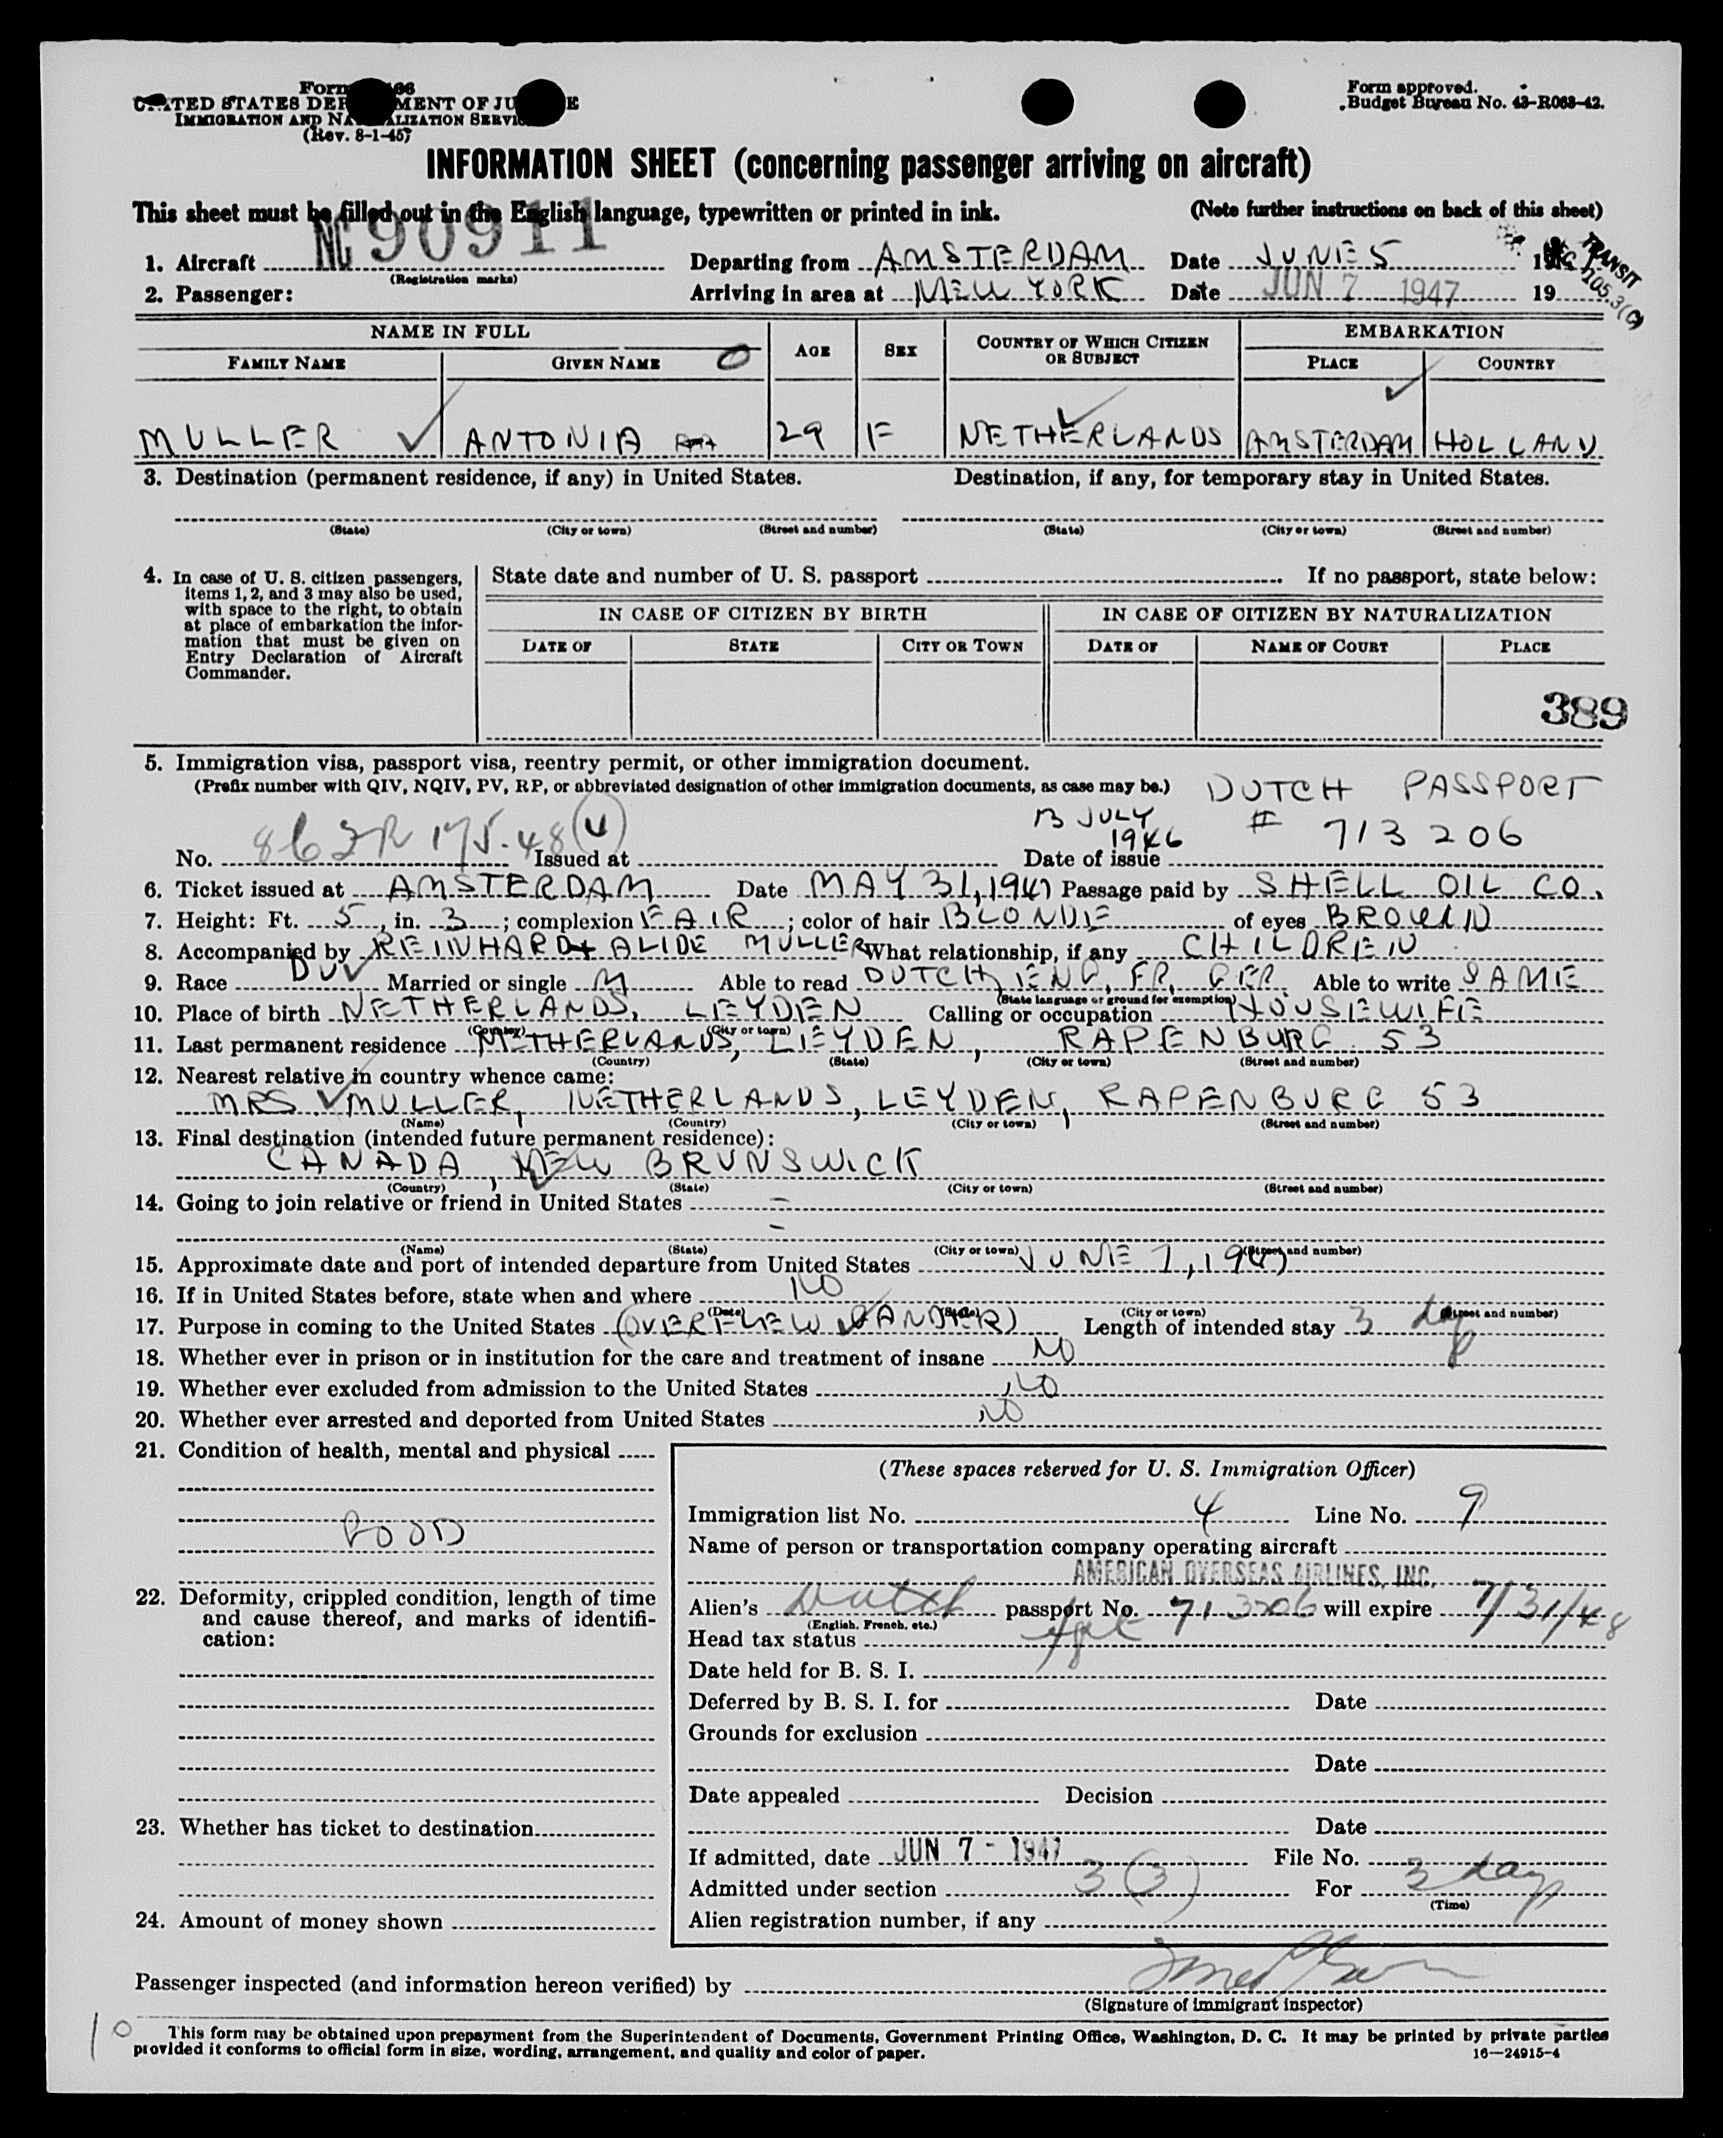 Form 66
UNITED STATES DEPARTMENT OF JUSTICE
IMMIGRATION AND NATURALIZATION SERVICE
(Rev. 8-1-45)
Form approved.
Budget Bureau No. 43-R063-42.
INFORMATION SHEET (concerning passenger arriving on aircraft)
This sheet must be filled out in the English language, typewritten or printed in ink. (Note further instructions on back of this sheet)
1. Aircraft NC 90911 Departing from AMSTERDAM Date JUNE 5 19
(Registration marks)
TRANSIT
105.3(C)
2. Passenger: Arriving in area at NEW YORK Date JUN 7 1947 19
NAME IN FULL AGE SEX COUNTRY OF WHICH CITIZEN OR SUBJECT EMBARKATION
FAMILY NAME GIVEN NAME 0 PLACE COUNTRY
MULLER ANTONIA 29 F NETHERLANDS AMSTERDAM HOLLAND
3. Destination (permanent residence, if any) in United States. Destination, if any, for temporary stay in United States.
(State) (City or town) (Street and number) (State) (City or town) (Street and number)
4. In case of U. S. citizen passengers, items 1, 2, and 3 may also be used, with space to the right, to obtain at place of embarkation the information that must be given on Entry Declaration of Aircraft Commander.
State date and number of U. S. passport If no passport, state below:
IN CASE OF CITIZEN BY BIRTH IN CASE OF CITIZEN BY NATURALIZATION
DATE OF STATE CITY OR TOWN DATE OF NAME OF COURT PLACE
389
5. Immigration visa, passport visa, reentry permit, or other immigration document.
(Prefix number with QIV, NQIV, PV, RP, or abbreviated designation of other immigration documents, as case may be.) DUTCH PASSPORT
13 JULY 1946 # 713206
No. Issued at Date of issue
6. Ticket issued at AMSTERDAM Date MAY 31, 1947 Passage paid by SHELL OIL CO.
7. Height: Ft. 5, in. 3; complexion FAIR; color of hair BLONDE of eyes BROWN
8. Accompanied by REINHARD + ALIDE MULLER What relationship, if any CHILDREN
9. Race DU Married or single M Able to read DUTCH, ENG, FR, GER Able to write SAME
(State language or ground for exemption)
10. Place of birth NETHERLANDS, LEYDEN Calling or occupation HOUSEWIFE
(Country) (City or town)
11. Last permanent residence NETHERLANDS, LEYDEN, RAPENBURG 53
(Country) (State) (City or town) (Street and number)
12. Nearest relative in country whence came:
MRS MULLER, NETHERLANDS, LEYDEN, RAPENBURG 53
(Name) (Country) (City or town) (Street and number)
13. Final destination (intended future permanent residence):
CANADA, NEW BRUNSWICK
(Country) (State) (City or town) (Street and number)
14. Going to join relative or friend in United States -
-
(Name) (State) (City or town) (Street and number)
15. Approximate date and port of intended departure from United States JUNE 7, 1947
16. If in United States before, state when and where NO
(Date) (State) (City or town) (Street and number)
17. Purpose in coming to the United States Length of intended stay 3 days
18. Whether ever in prison or in institution for the care and treatment of insane NO
19. Whether ever excluded from admission to the United States NO
20. Whether ever arrested and deported from United States NO
21. Condition of health, mental and physical
GOOD
22. Deformity, crippled condition, length of time and cause thereof, and marks of identification:
23. Whether has ticket to destination
24. Amount of money shown
(These spaces reserved for U. S. Immigration Officer)
Immigration list No. 4 Line No. 9
Name of person or transportation company operating aircraft
AMERICAN OVERSEAS AIRLINES, INC.
Alien's Dutch passport No. 713206 will expire 7/31/48
(English, French, etc.)
Head tax status
Date held for B. S. I.
Deferred by B. S. I. for Date
Grounds for exclusion
Date
Date appealed Decision
Date
If admitted, date JUN 7 - 1947 File No.
Admitted under section 3(3) For 3 days
(Time)
Alien registration number, if any
Passenger inspected (and information hereon verified) by
(Signature of immigrant inspector)
10
This form may be obtained upon prepayment from the Superintendent of Documents, Government Printing Office, Washington, D. C. It may be printed by private parties
provided it conforms to official form in size, wording, arrangement, and quality and color of paper. 16—24915-4